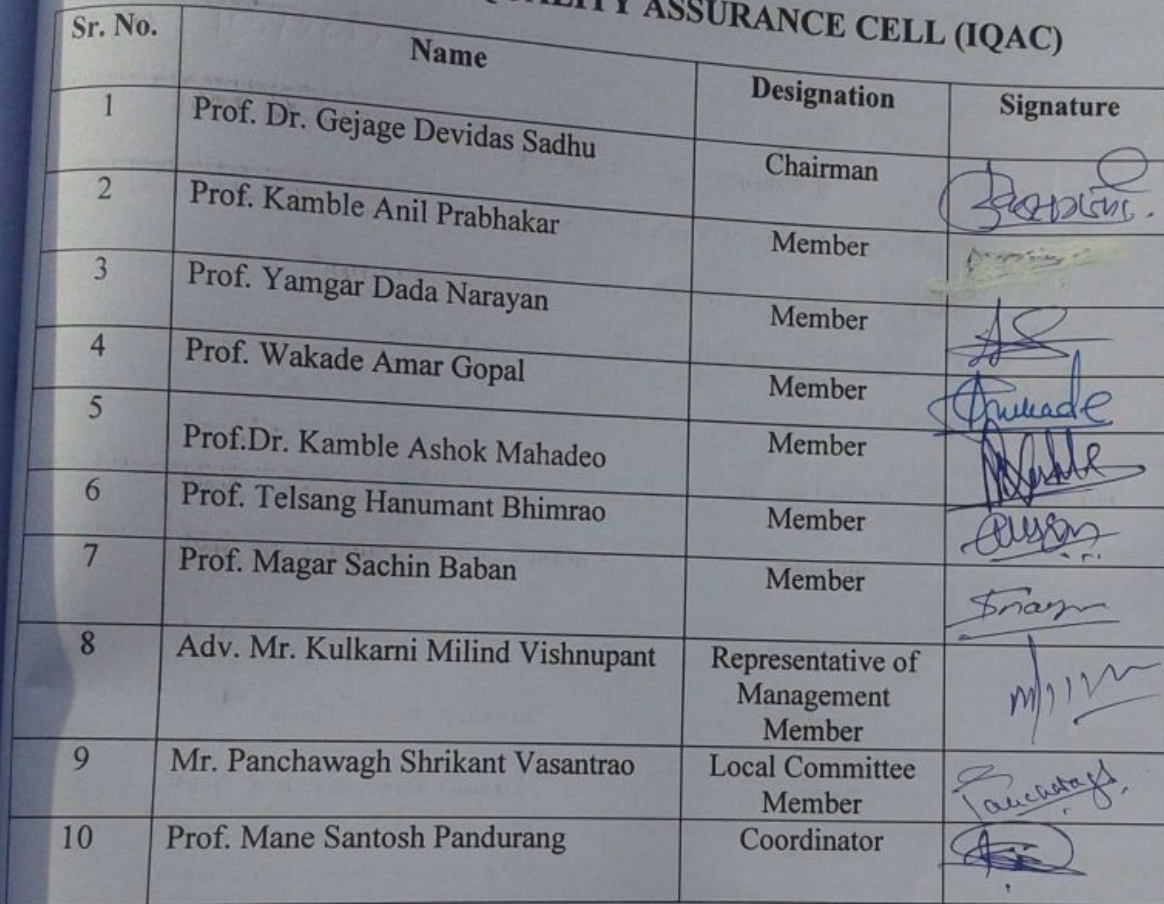 QUALITY ASSURANCE CELL (IQAC)
Sr. No. Name Designation Signature
1 Prof. Dr. Gejage Devidas Sadhu Chairman
2 Prof. Kamble Anil Prabhakar Member
3 Prof. Yamgar Dada Narayan Member
4 Prof. Wakade Amar Gopal Member
5 Prof.Dr. Kamble Ashok Mahadeo Member
6 Prof. Telsang Hanumant Bhimrao Member
7 Prof. Magar Sachin Baban Member
8 Adv. Mr. Kulkarni Milind Vishnupant Representative of
Management
Member
9 Mr. Panchawagh Shrikant Vasantrao Local Committee
Member
10 Prof. Mane Santosh Pandurang Coordinator